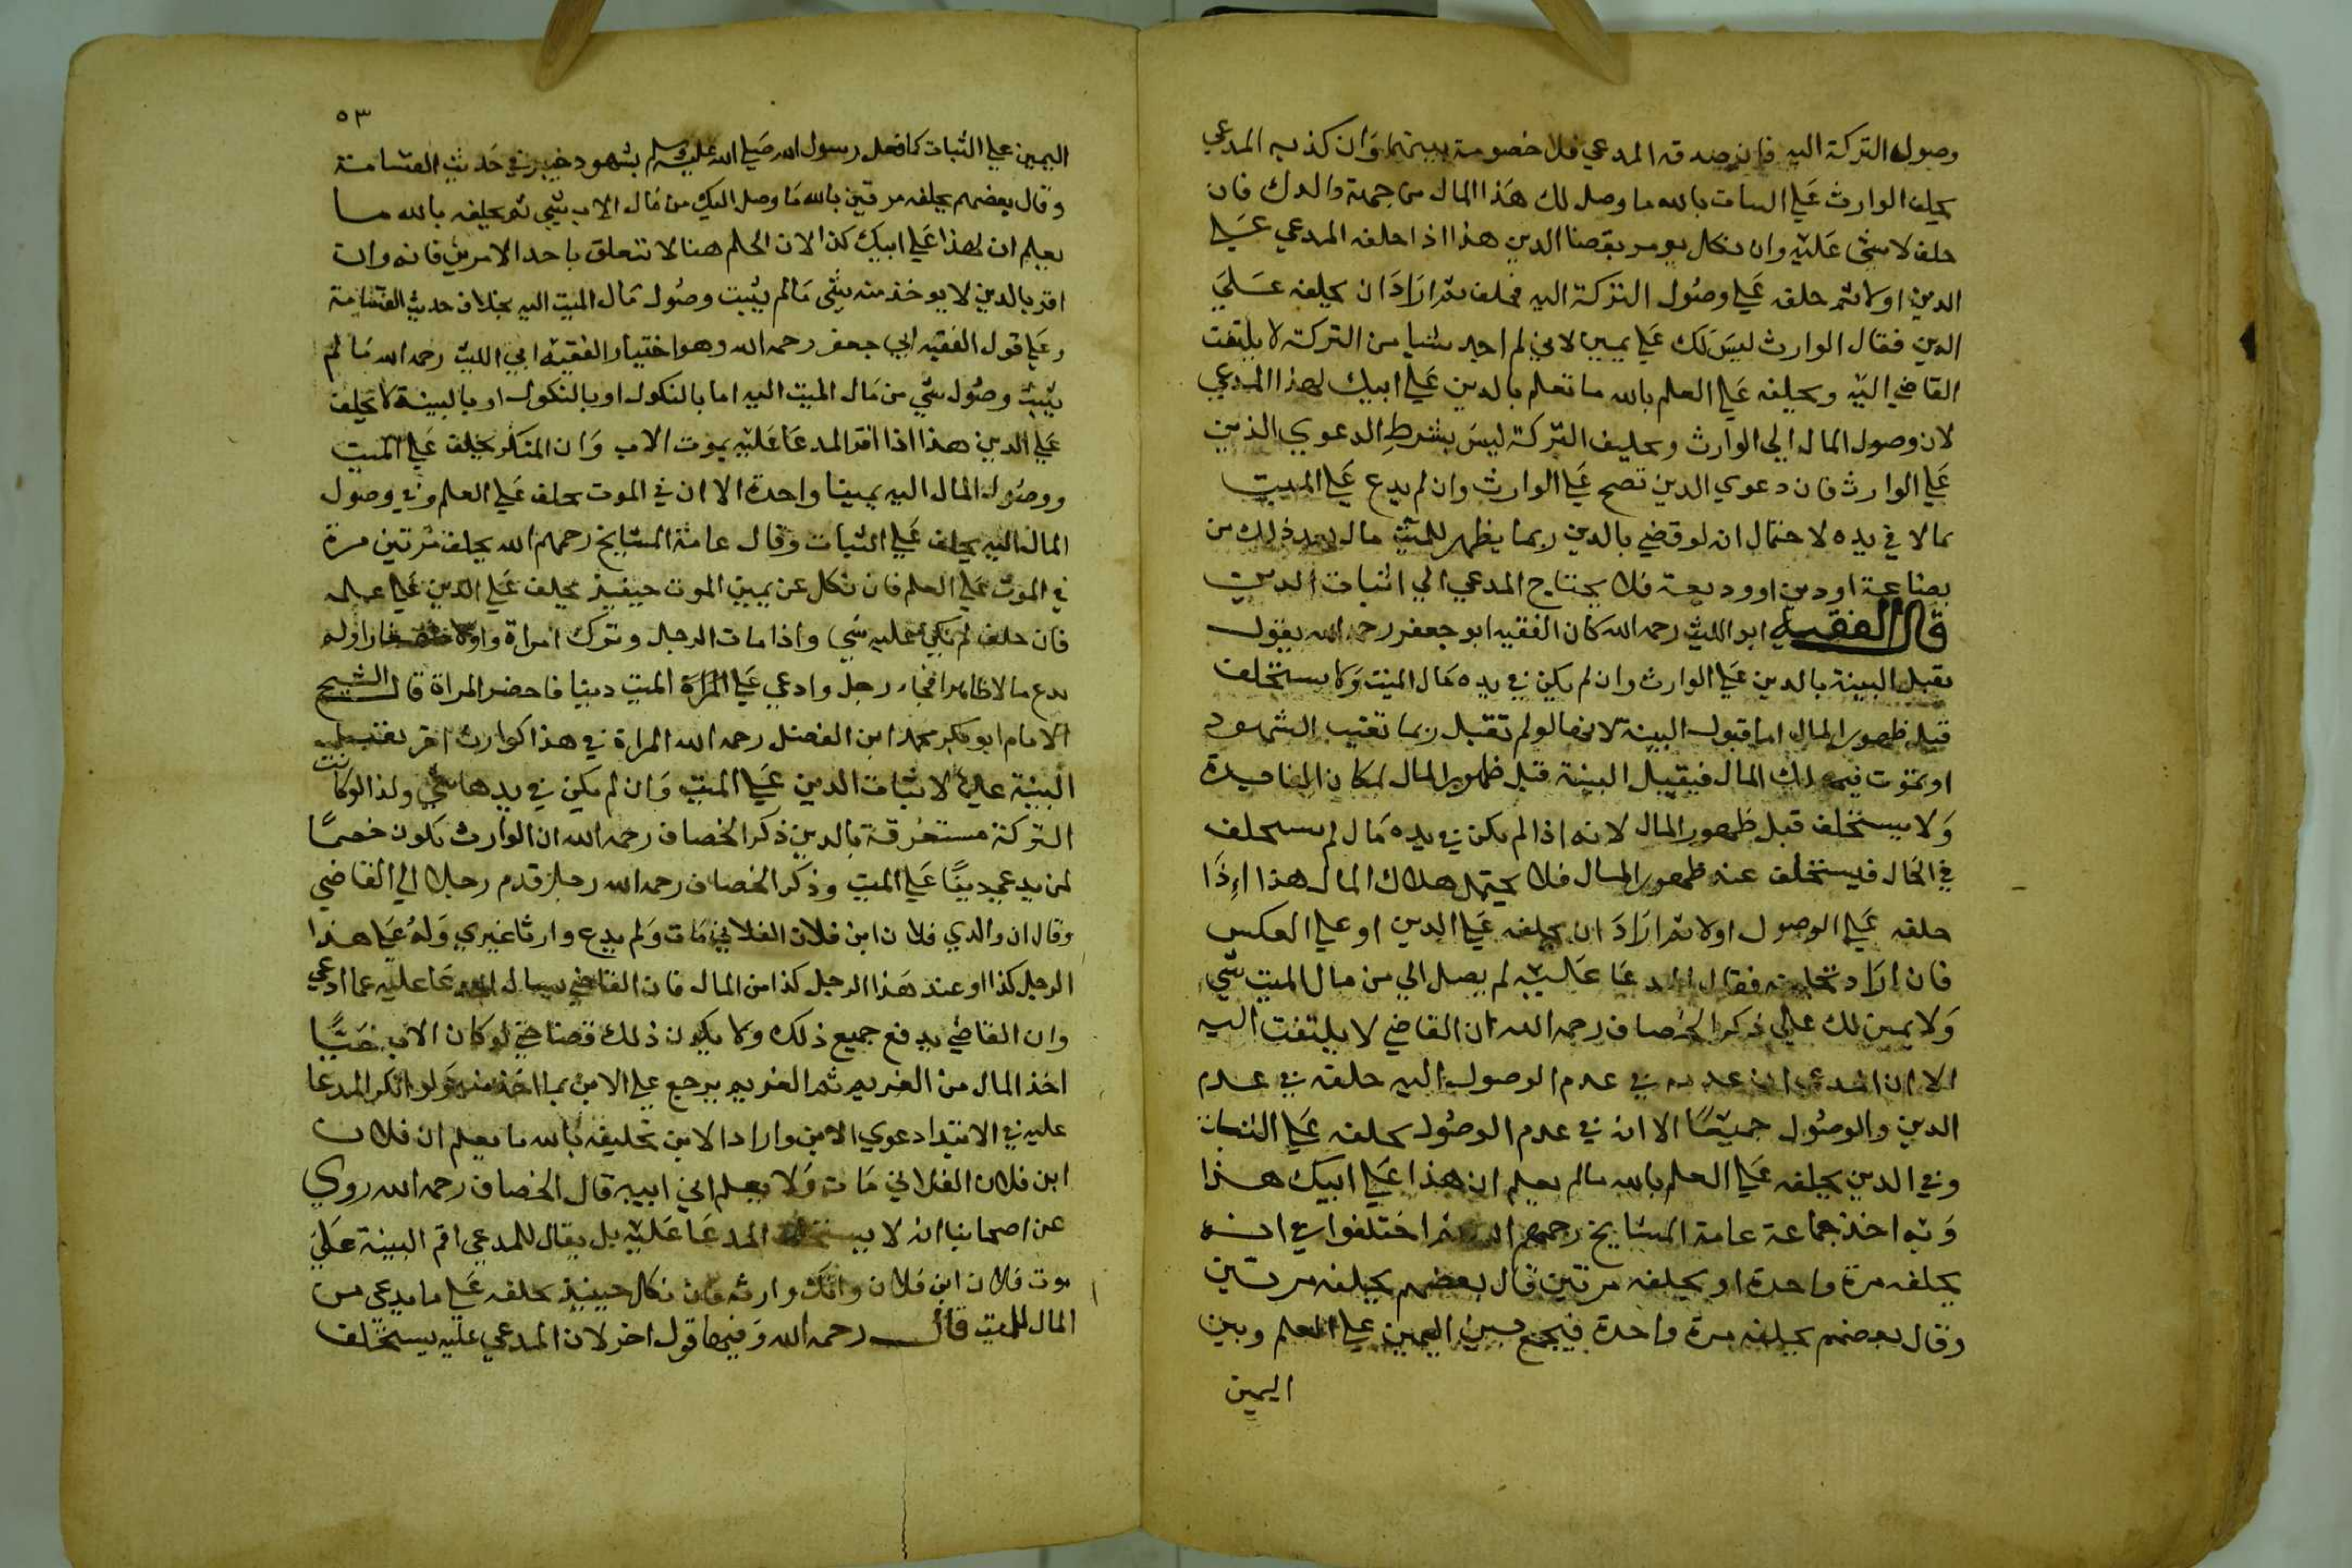 وصول التركة اليه فان صدقه المدعي فلا خصومة بينهما وان كذبه المدعي
يحلف الوارث علي البتات بالله ما وصل لك هذا المال من جهة والدك فان
حلف لا شي عليه وان نكل يومر بقضا الدين هذا اذا حلفه المدعي علي
الدين اولا ثم حلفه علي وصول التركة اليه فحلف ثم اراد ان يحلفه علي
الدين فقال الوارث ليس لك علي يمين لاني لم اجد شيا من التركة لا يلتفت
القاضي اليه ويحلفه علي العلم بالله ما تعلم بالدين علي ابيك لهذا المدعي
لان وصول المال الي الوارث وتحليف التركة ليس بشرط الدعوي الدين
علي الوارث فان دعوي الدين تصح علي الوارث وان لم يدع علي الميت
مالا في يده لاحتمال ان لو قضي بالدين ربما يظهر للميت مال بعد ذلك من
بضاعة او دين او وديعة فلا يحتاج المدعي الي اثبات الدين
قال الفقيه ابو الليث رحمه الله كان الفقيه ابو جعفر رحمه الله يقول
تقبل البينة بالدين علي الوارث وان لم يكن في يده مال الميت ولا يستحلف
قبل ظهور المال اما قبول البينة لانها لو لم تقبل ربما تغيب الشهود
او تموت فيهلك المال فيقبل البينة قبل ظهور المال لمكان الفايدة
ولا يستحلف قبل ظهور المال لانه اذا لم يكن في يده مال لم يستحلف
في الحال فيستحلف عند ظهور المال فلا يحتمل هلاك المال هذا اذا
حلفه علي الوصول اولا ثم اراد ان يحلفه علي الدين او علي العكس
فان اراد تحليفه فقال المدعا عليه لم يصل الي من مال الميت شي
ولا يمين لك علي ذكر الخصاف رحمه الله ان القاضي لا يلتفت اليه
الا ان المدعي ان في عدم الوصول اليه حلفه في عدم
الدين والوصول جميعا الا ان في عدم الوصول يحلفه علي البتات
وفي الدين يحلفه علي العلم بالله مالم يعلم ان هذا علي ابيك هذا
وبه اخذ جماعة عامة المشايخ رحمهم الله ثم اختلفوا في انه
يحلفه مرة واحدة او يحلفه مرتين قال بعضهم يحلفه مرتين
وقال بعضهم يحلفه مرة واحدة فيجمع بين اليمين علي العلم وبين
اليمين
٥٣
اليمين علي البتات كما فعل رسول الله صلي الله عليه وسلم بشهود خيبر في حديث القسامة
وقال بعضهم يحلفه مرتين بالله ما وصل اليك من مال الاب شي ثم يحلفه بالله ما
يعلم ان لهذا علي ابيك كذا لان الحلم هنا لا تتعلق باحد الامرين فانه وان
اقر بالدين لا يوخذ منه شي مالم يثبت وصول مال الميت اليه بخلاف حديث القسامة
وعلي قول الفقيه ابي جعفر رحمه الله وهو اختيار الفقيه ابي الليث رحمه الله مالم
يثبت وصول شي من مال الميت اليه اما بالنكول او بالنكول او بالبينة لا يحلف
علي الدين هذا اذا اقر المدعا عليه بموت الاب وان المنكر يحلف علي الميت
ووصول المال اليه يمينا واحدة الا ان في الموت يحلف علي العلم وفي وصول
المال اليه يحلف علي البتات وقال عامة المشايخ رحمهم الله يحلف مرتين مرة
في الموت علي العلم فان نكل عن يمين الموت حينيذ يحلف علي الدين علي علمه
فان حلف لم يكن عليه شي واذا مات الرجل وترك امراة واولاد صغارا ولم
يدع مالا ظاهرا فجاء رجل وادعي علي المراة الميت دينا فاحضر المراة قال الشيخ
الامام ابو بكر محمد ابن الفضل رحمه الله المراة في هذا كوارث اخر تقبل
البينة عليه لاثبات الدين علي الميت وان لم يكن في يدها شي ولذا لو كانت
التركة مستغرقة بالدين ذكر الخصاف رحمه الله ان الوارث يكون خصما
لمن يدعي دينا علي الميت وذكر الخصاف رحمه الله رجل قدم رجلا الي القاضي
وقال ان والدي فلان ابن فلان الفلاني مات ولم يدع وارثا غيري وله علي هذا
الرجل كذا او عند هذا الرجل كذا من المال فان القاضي يسال المدعا عليه عما ادعي
وان القاضي يدفع جميع ذلك ولا يكون ذلك قضا حتي لو كان الاب حيا
اخذ المال من الغريم ثم الغريم يرجع علي الابن بما اخذ منه ولو انكر المدعا
عليه في الابتدا دعوي الابن واراد الابن تحليفه بالله ما يعلم ان فلان
ابن فلان الفلاني مات ولا يعلم اني ابيه قال الخصاف رحمه الله روي
عن اصحابنا انه لا يستحلف المدعا عليه بل يقال للمدعي اقم البينة علي
موت فلان ابن فلان وانك وارثه فان نكل حينيذ يحلفه علي ما يدعي من
المال للميت قال رحمه الله وفيها قول اخر لان المدعي عليه يستحلف